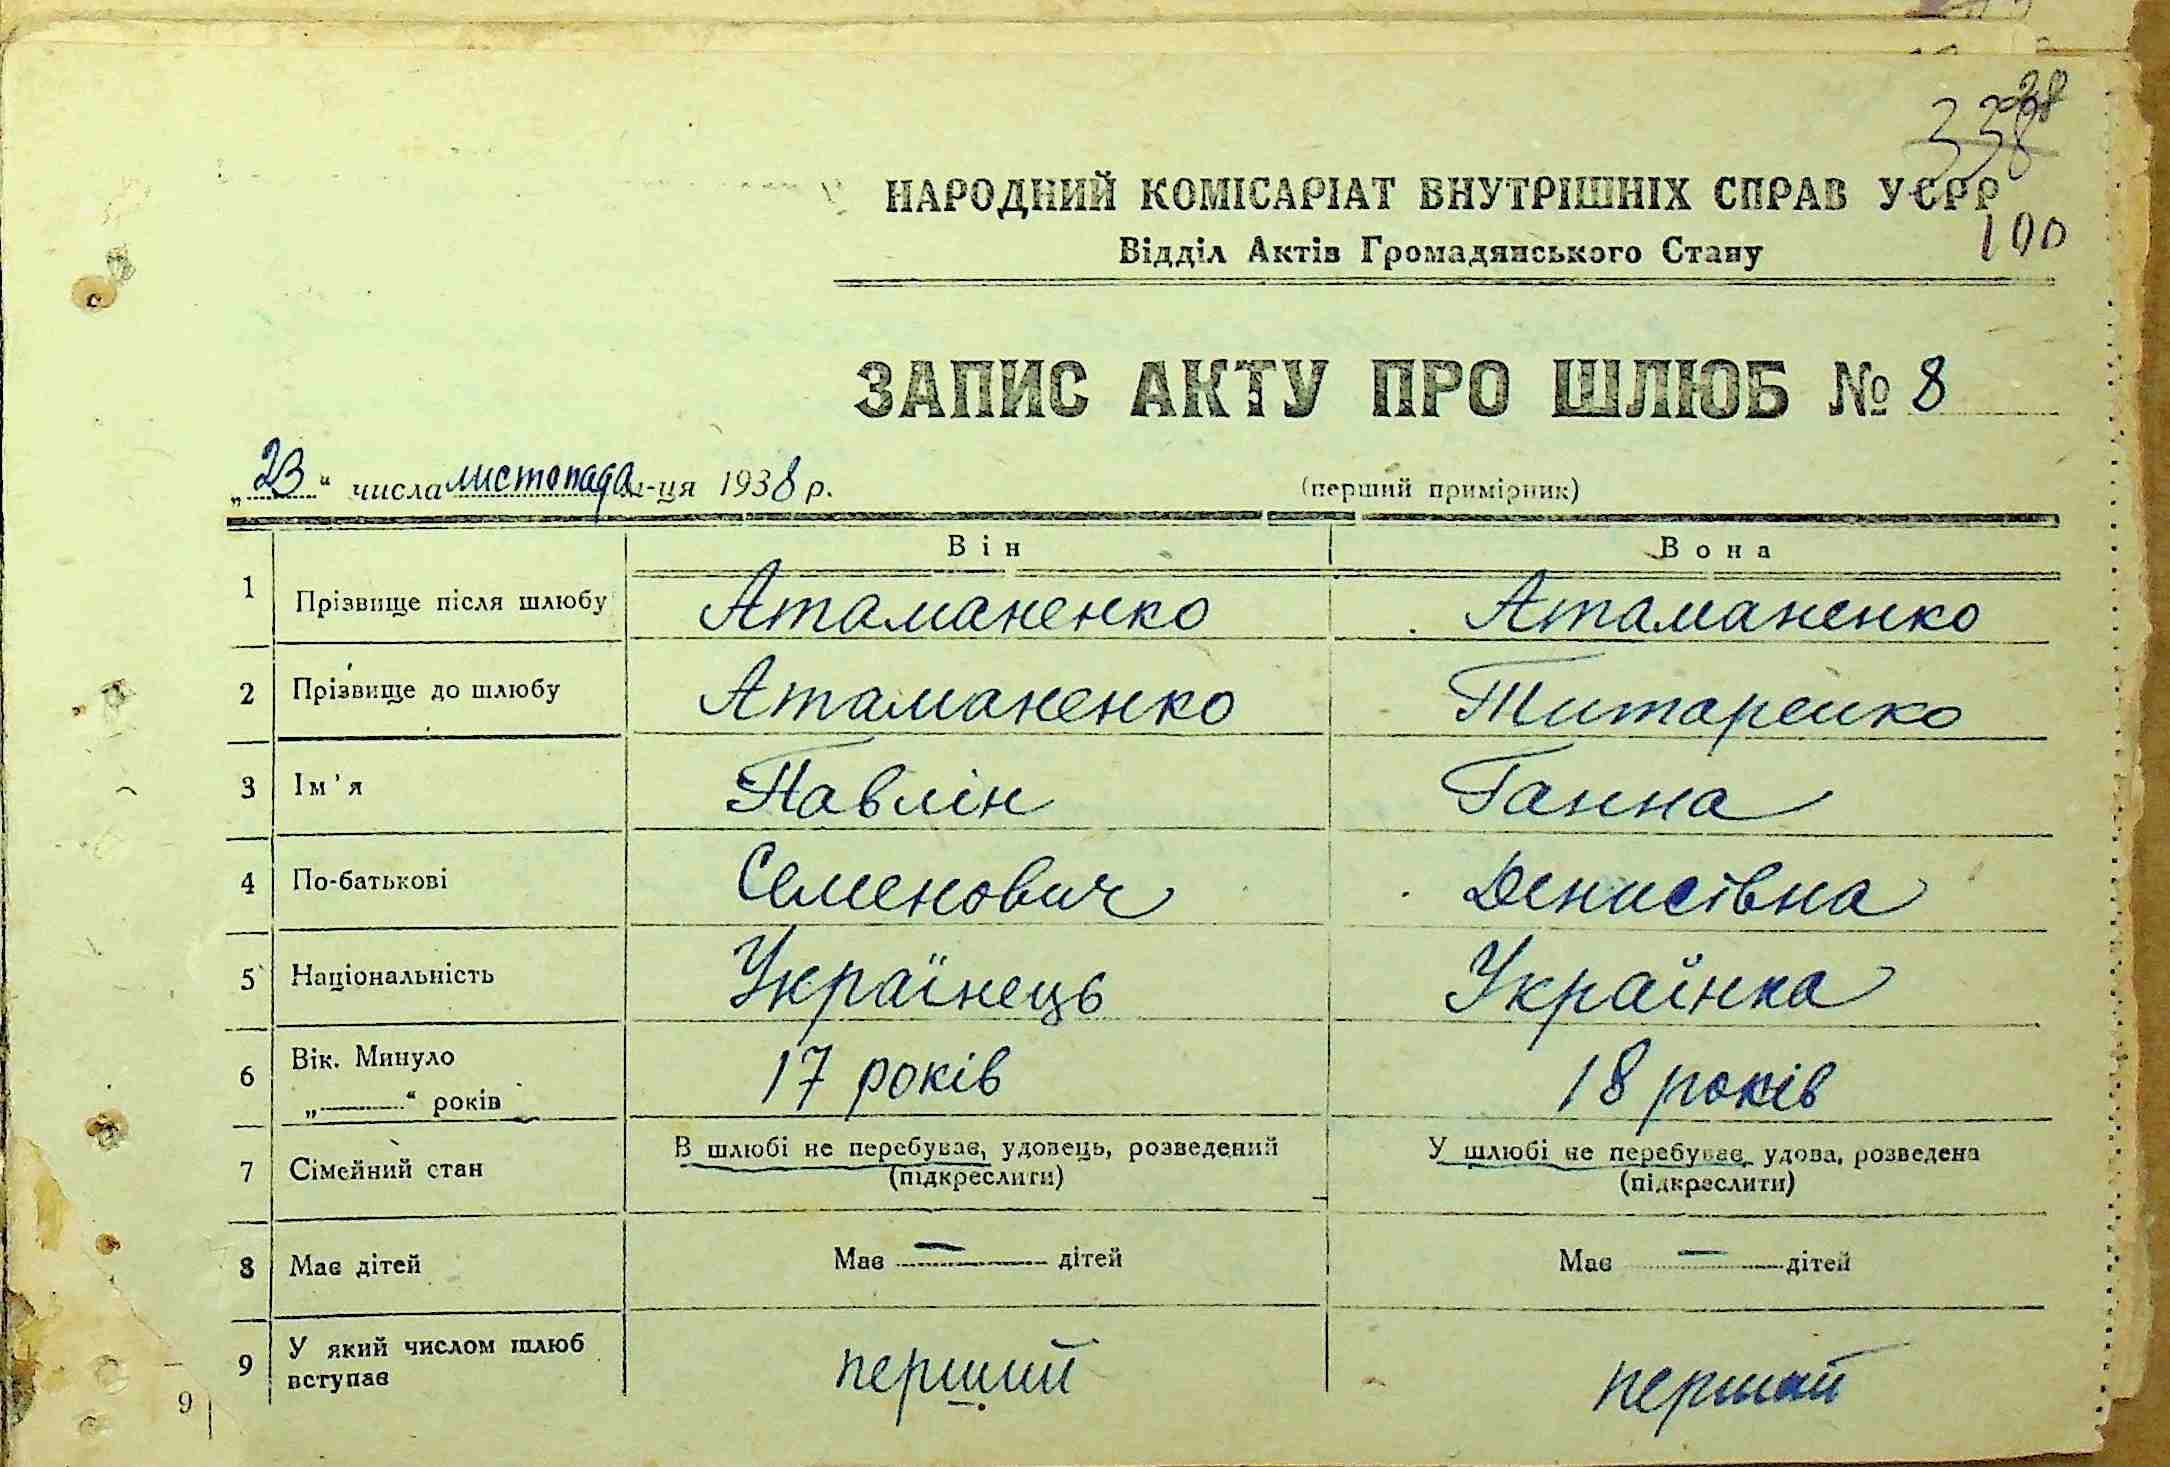 28
338
НАРОДНИЙ КОМІСАРІАТ ВНУТРІШНІХ СПРАВ УСРР
100
Відділ Актів Громадянського Стану
ЗАПИС АКТУ ПРО ШЛЮБ № 8
„23“ числа листопада м-ця 1938 р. (перший примірник)
Він Вона
1 Прізвище після шлюбу Атаманенко Атаманенко
2 Прізвище до шлюбу Атаманенко Титаренко
3 Ім'я Павлін Ганна
4 По-батькові Семенович Денисівна
5 Національність Українець Українка
6 Вік. Минуло „——“ років 17 років 18 років
7 Сімейний стан В шлюбі не перебуває, удовець, розведений (підкреслити) У шлюбі не перебуває, удова, розведена (підкреслити)
8 Має дітей Має — дітей Має — дітей
9 У який числом шлюб вступає перший перший
9